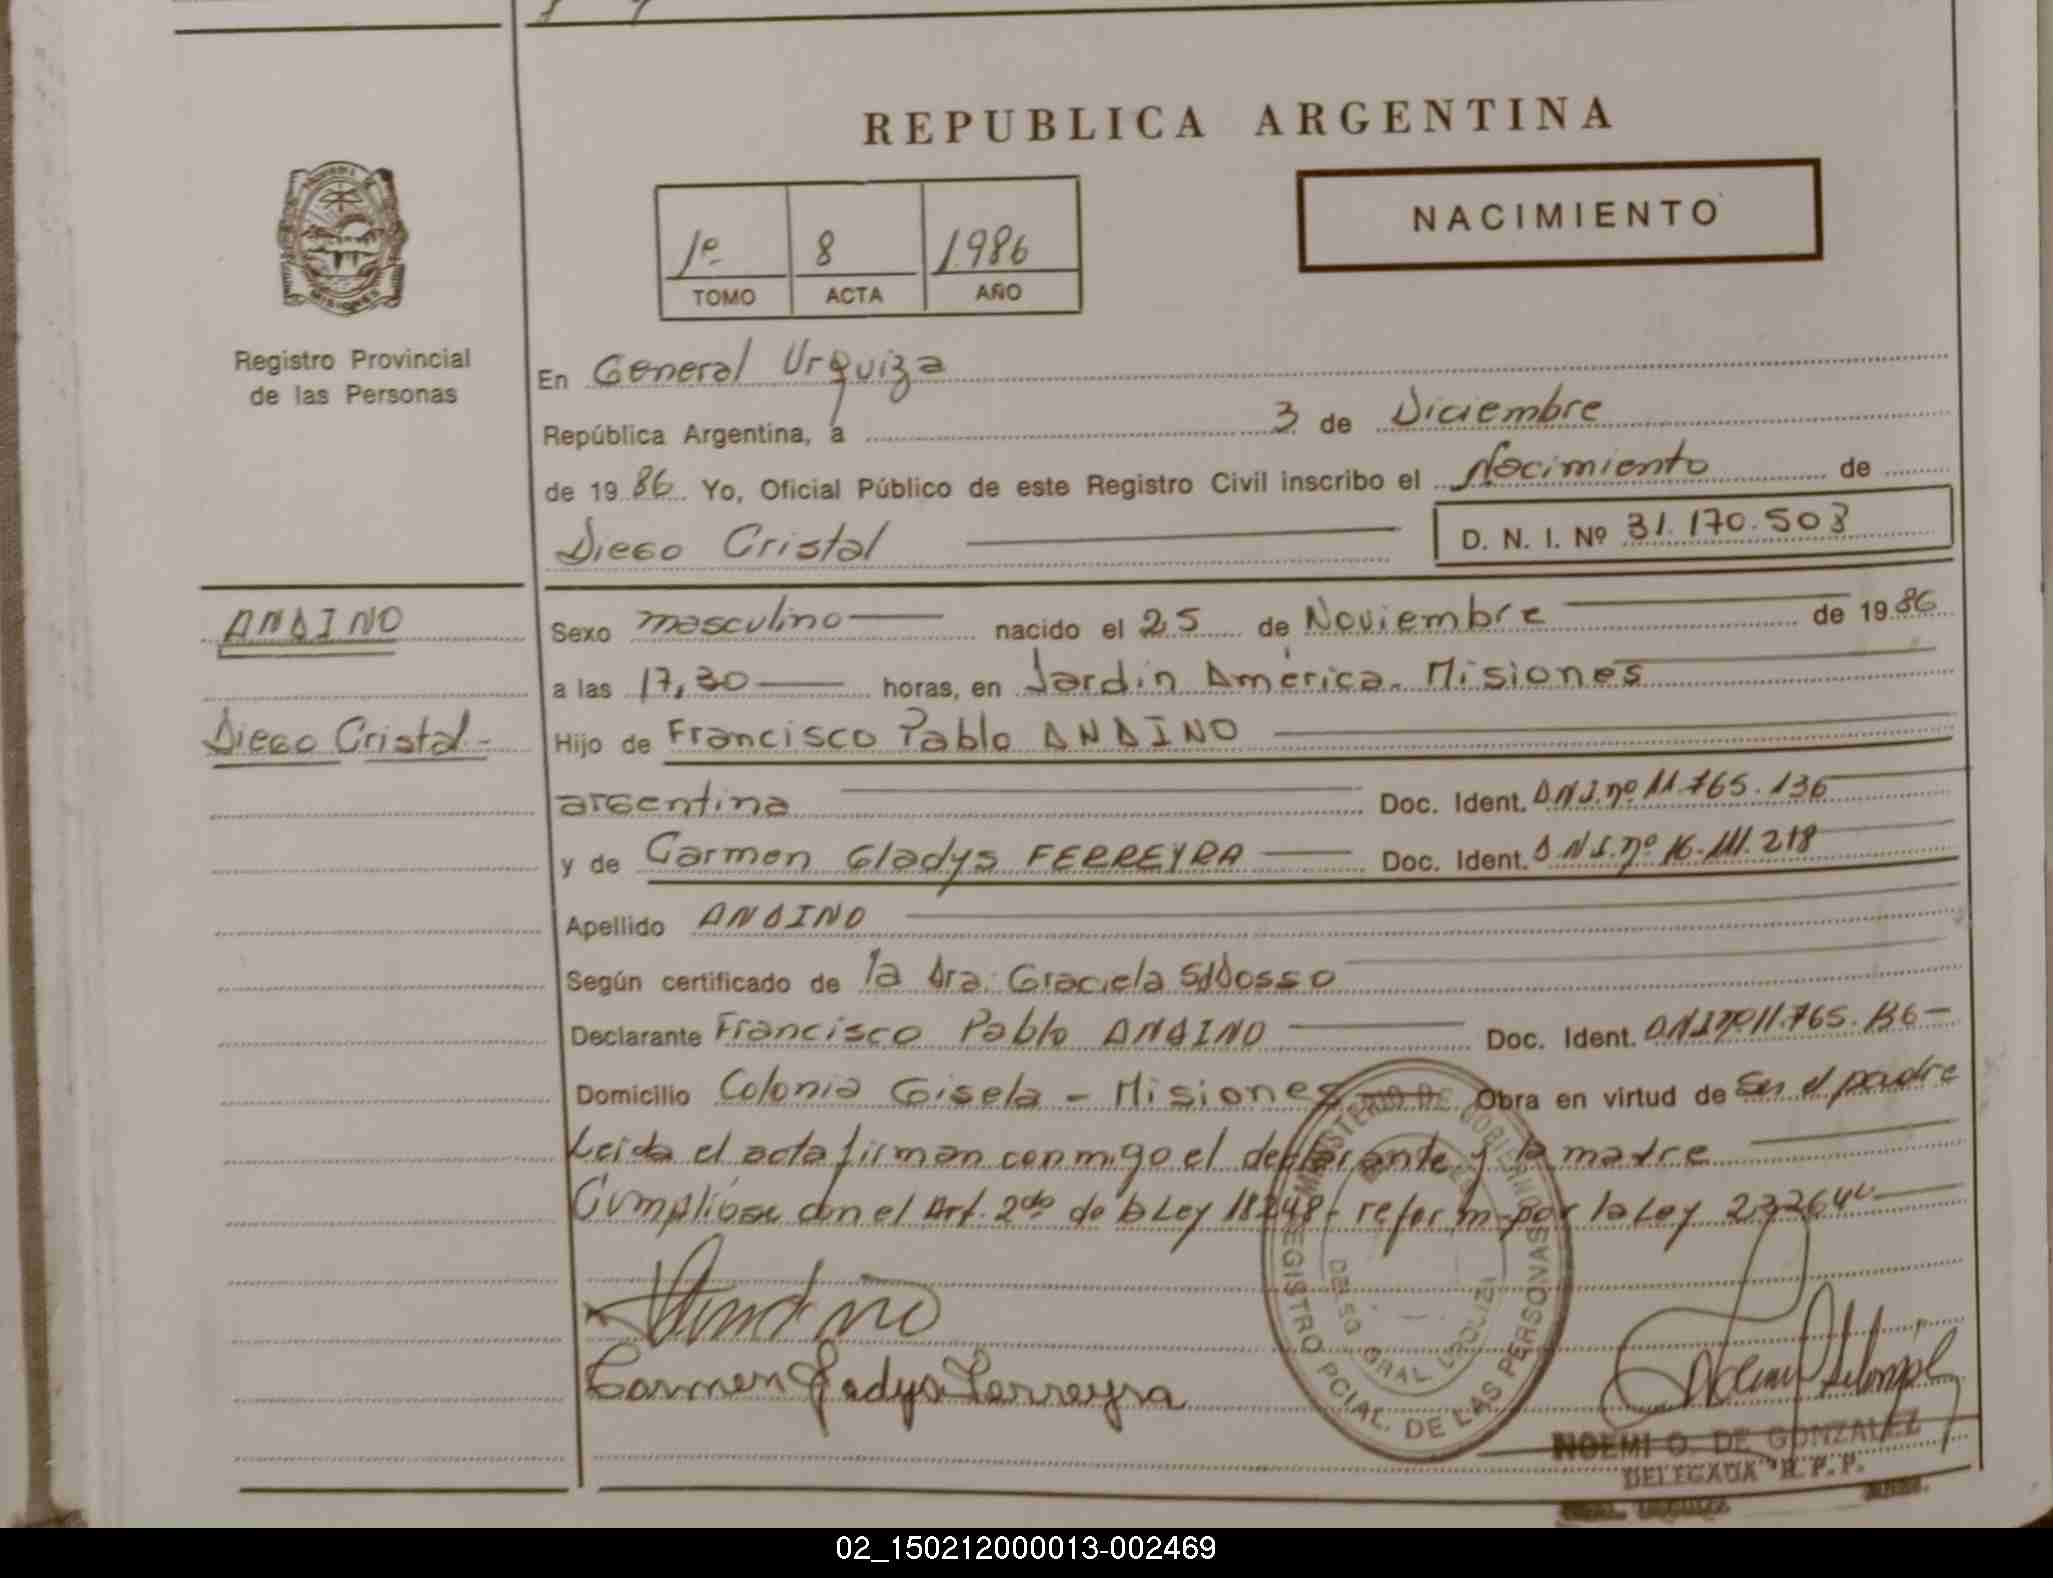 REPUBLICA ARGENTINA
NACIMIENTO
1º 8 1986
TOMO ACTA AÑO
Registro Provincial
de las Personas
En General Urquiza
República Argentina, a 3 de Diciembre
de 1986 Yo, Oficial Público de este Registro Civil inscribo el Nacimiento de
Diego Cristal D. N. I. Nº 31.170.503
ANDINO
Diego Cristal-
Sexo masculino nacido el 25 de Noviembre de 1986
a las 17,30 horas, en Jardín América. Misiones
Hijo de Francisco Pablo ANDINO
argentina Doc. Ident. DNI.nº 11.765.136
y de Carmen Gladys FERREYRA Doc. Ident. DNI.nº 16.111.218
Apellido ANDINO
Según certificado de la Dra. Graciela
Declarante Francisco Pablo ANDINO Doc. Ident. DNI nº 11.765.136-
Domicilio Colonia Gisela - Misiones Obra en virtud de ser el padre
Leida el acta firman conmigo el declarante y la madre
Cumpliose con el Art. 2do de la Ley 18248- reform. por la Ley 23264
Andino
Carmen Gladys Ferreyra
MINISTERIO DE GOBIERNO
REGISTRO PCIAL. DE LAS PERSONAS
GRAL URQUIZA
NOEMI O. DE GONZALEZ
DELEGADA R. P. P.
02_150212000013-002469